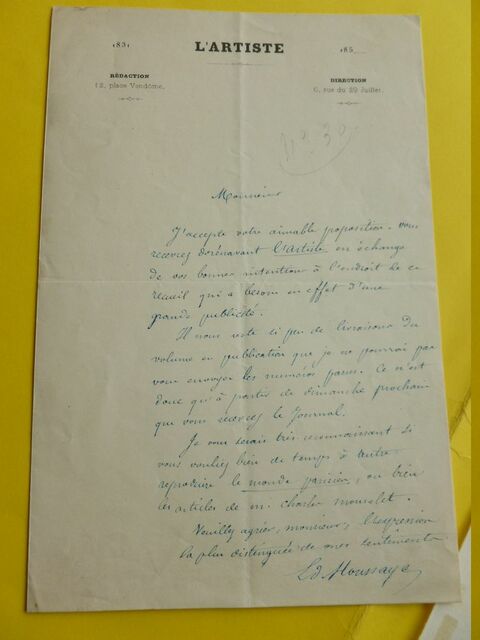 1831
L'ARTISTE
185
RÉDACTION
12, place Vendôme.
DIRECTION
6, rue du 29 Juillet.
No 30
Monsieur
J'accepte votre aimable proposition. vous
recevrez dorénavant l'artiste en échange
de vos bonnes intentions à l'endroit de ce
recueil qui a besoin en effet d'une
grande publicité.
Il nous reste si peu de livraisons du
volume en publication que je ne pourrai pas
vous envoyer les numéros parus. Ce n'est
donc qu'à partir de dimanche prochain
que vous recevrez le Journal.
Je vous serais très reconnaissant si
vous vouliez bien de temps à autre
reproduire le monde parisien, ou bien
les articles de m. charles monselet.
Veuillez agréer, monsieur, l'expression
la plus distinguée de mes sentiments
Ed Houssaye